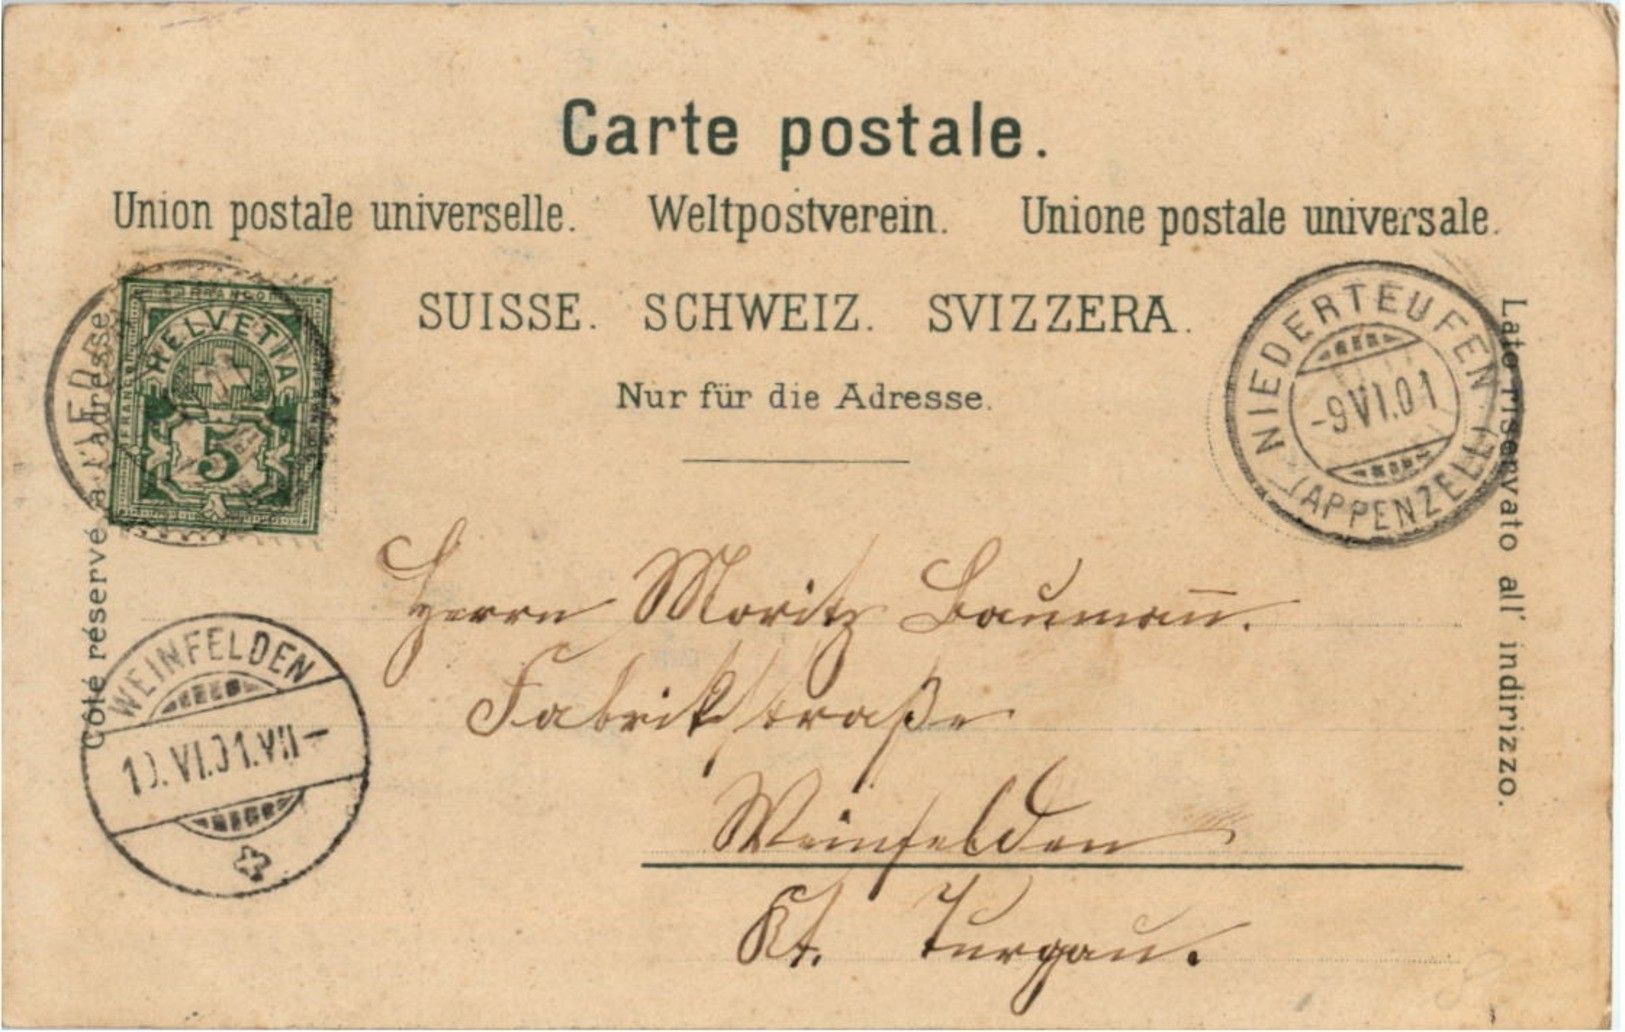 Carte postale.
Union postale universelle. Weltpostverein. Unione postale universale.
SUISSE. SCHWEIZ. SVIZZERA.
Nur für die Adresse.
Côté réservé à l'adresse.
Lato riservato all' indirizzo.
FRANCO
HELVETIA
5
NIEDERTEUFEN
-9 VI.01
(APPENZELL)
WEINFELDEN
10.VI.01.VII-
Herrn Moritz Baumañ.
Fabrikstraße
Weinfelden
Kt. Turgau.